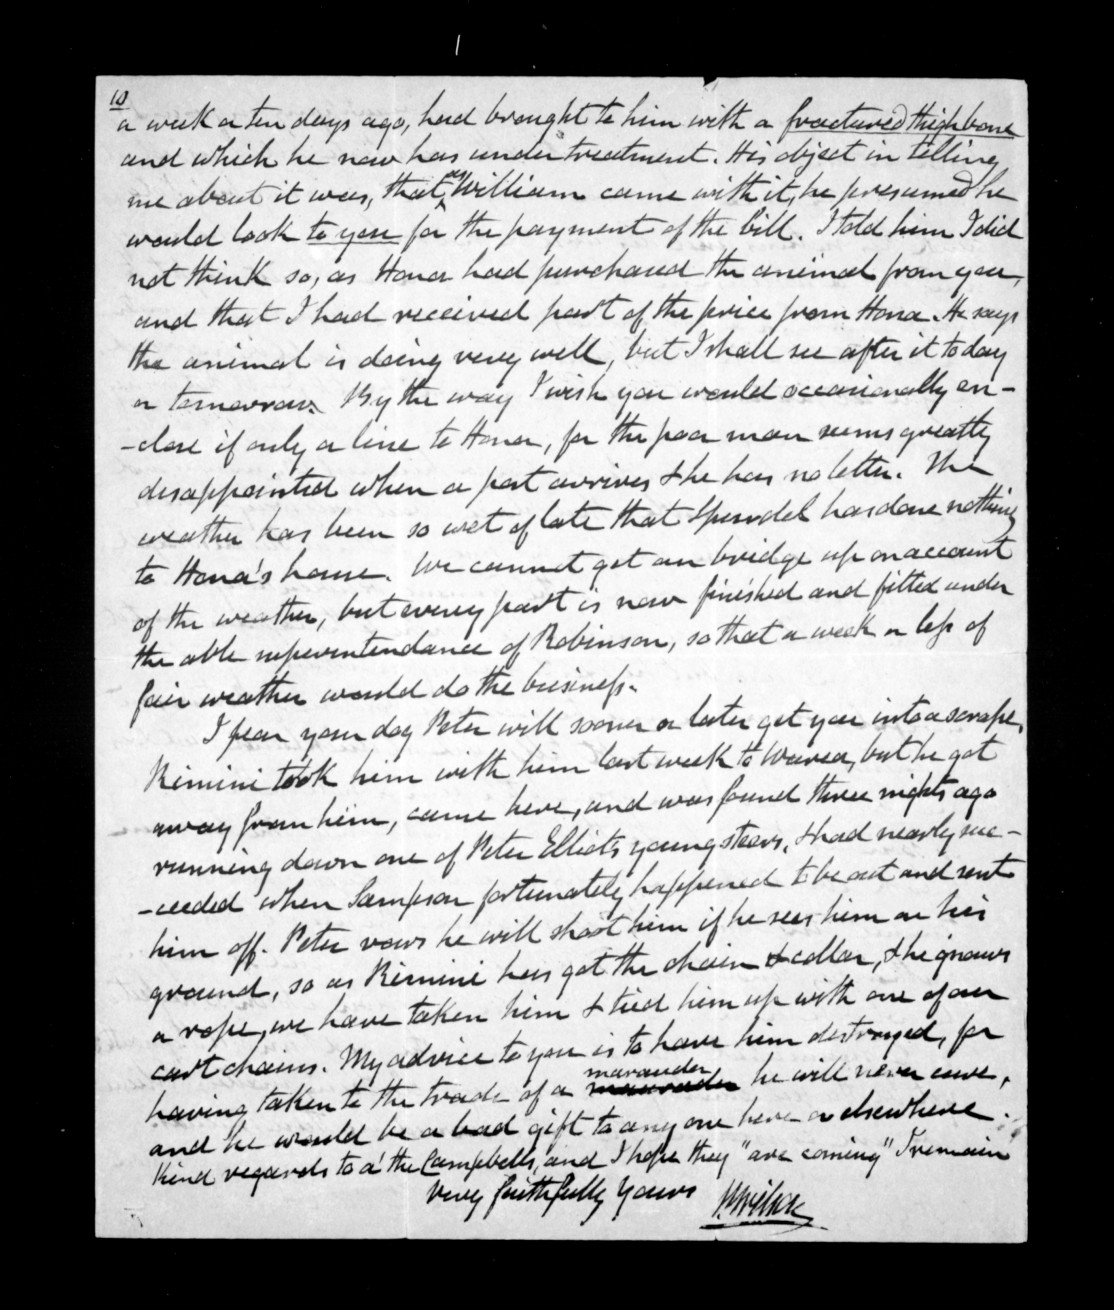 10
a week or ten days ago, had brought to him with a fractured thigh bone
and which he now has under treatment. His object in telling
me about it was, that, as William came with it, he presumed he
would look to you for the payment of the bill. I told him I did
not think so, as Hona had purchased the animal from you,
and that I had received part of the price from Hona. He says
the animal is doing very well, but I shall see after it today
or tomorrow. By the way I wish you would occasionally en-
-close if only a line to Hona, for the poor man seems greatly
disappointed when a post arrives & he has no letter. The
weather has been so wet of late that Spurdel has done nothing
to Hona's house. We cannot get our bridge up on account
of the weather, but every part is now finished and fitted under
the able superintendance of Robinson, so that a week or less of
fair weather would do the business.
I fear your dog Peter will sooner or later get you into a scrape.
Rimini took him with him last week to Wairoa, but he got
away from him, came here, and was found three nights ago
running down one of Peter Elliots young steers, & had nearly suc-
-ceeded when Sampson fortunately happened to be out and sent
him off. Peter vows he will shoot him if he sees him on his
ground, so as Rimini has got the chain & collar, & he gnaws
a rope, we have taken him & tied him up with one of our
cart chains. My advice to you is to have him destroyed, for
having taken to the trade of a marauder he will never cure,
and he would be a bad gift to any one here or elsewhere.
Kind regards to a' the Campbells, and I hope they "are coming" I remain
very faithfully Yours